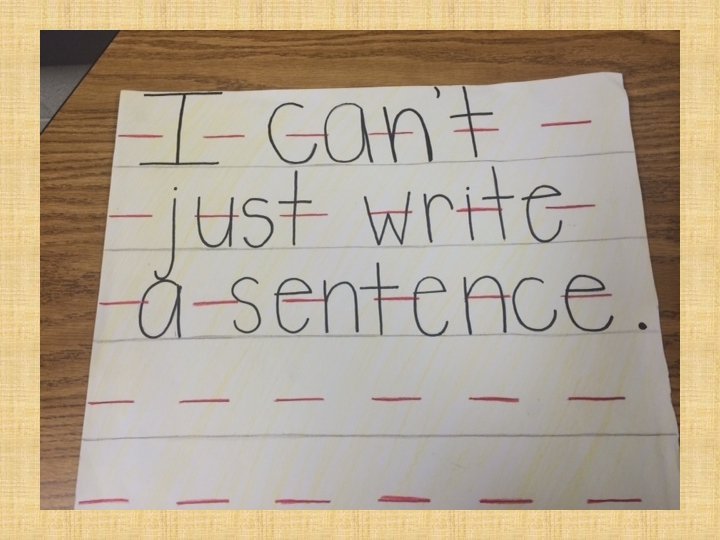 I can't
just write
a sentence.